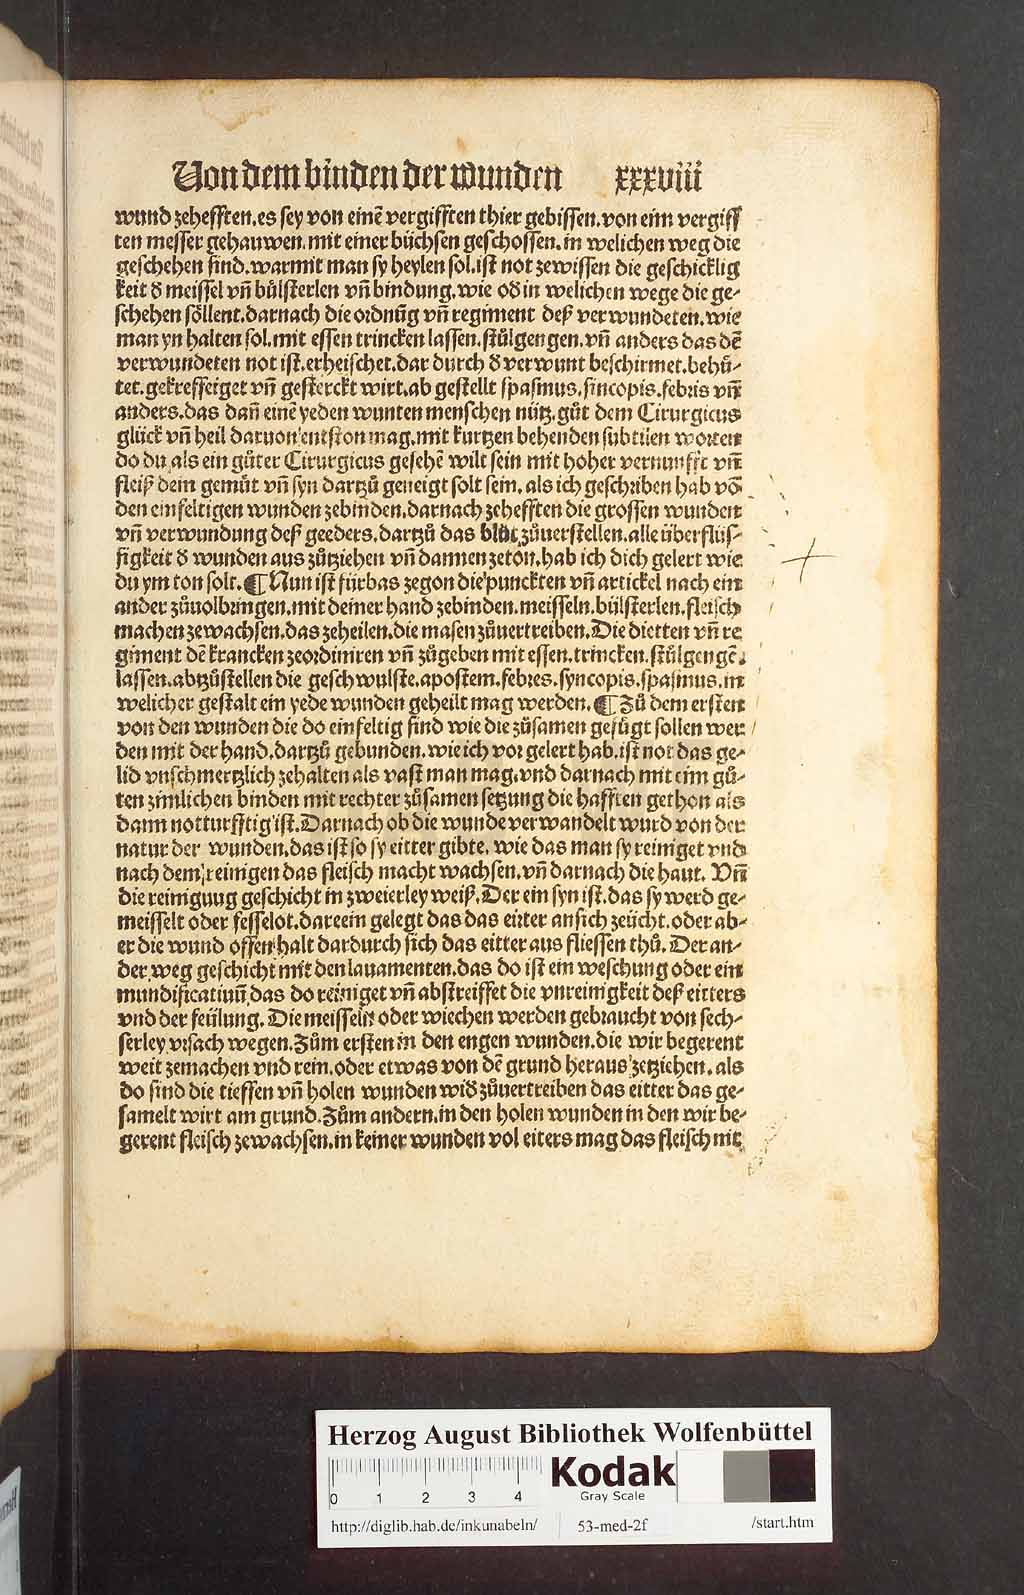 Von dem binden der wunden xxxviii
wund zehefften. es sey von einē vergifften thier gebissen. von eim vergiff
ten messer gehauwen. mit einer büchsen geschossen. in welichen weg die
geschehen sind. warmit man sy heylen sol. ist not zewissen die geschicklig
keit d meissel vn̄ bülsterlen vn̄ bindung. wie od in welichen wege die ge-
schehen söllent. darnach die ordnūg vn̄ regiment deß verwundeten. wie
man yn halten sol. mit essen trincken lassen. stůlgengen. vn̄ anders das dē
verwundeten not ist. erheischet. dar durch d verwunt beschirmet. behů-
tet. gekreffeiget vn̄ gesterckt wirt. ab gestellt spasmus. sincopis. febris vn̄
anders. das dan̄ einē yeden wunten menschen nütz. gůt dem Cirurgicus
glück vn̄ heil daruon entston mag. mit kurtzen behenden subtilen worten
do du als ein gůter Cirurgicus gesehē wilt sein mit hoher vernunfft vn̄
fleiß dem gemůt vn̄ syn dartzů geneigt solt sein. als ich geschriben hab vō
den einfeltigen wunden zebinden. darnach zehefften die grossen wunden
vn̄ verwundung deß geeders. dartzů das blůt zůuerstellen. alle überflüs-
sigkeit d wunden aus zůtziehen vn̄ dannen zetōn. hab ich dich gelert wie
du ym ton solt. ¶ Nun ist fürbas zegon die punckten vn̄ artickel nach ein
ander zůuolbringen. mit deiner hand zebinden. meisseln. bülsterlen. fleisch
machen zewachsen. das zeheilen. die masen zůuertreiben. Die dietten vn̄ re
giment dē krancken zeordiniren vn̄ zůgeben mit essen. trincken. stůlgengē.
lassen. abtzůstellen die geschwulste. apostem. febres. syncopis. spasmus. in
welicher gestalt ein yede wunden geheilt mag werden. ¶ Zů dem ersten
von den wunden die do einfeltig sind wie die zůsamen gefügt sollen wer
den mit der hand. dartzů gebunden. wie ich vor gelert hab. ist not das ge-
lid vnschmertzlich zehalten als vast man mag. vnd darnach mit eim gů-
ten zimlichen binden mit rechter zůsamen setzung die hafften gethon als
dann notturfftig ist. Darnach ob die wunde verwandelt wurd von der
natur der wunden. das ist so sy eitter gibte. wie das man sy reiniget vnd
nach dem reinigen das fleisch macht wachsen. vn̄ darnach die haut. Vn̄
die reinigung geschicht in zweierley weiß. Der ein syn ist. das sy werd ge-
meisselt oder fesselot. darein gelegt das das eitter ansich zeücht. oder ab-
er die wund offen halt dardurch sich das eitter aus fliessen thů. Der an-
der weg geschicht mit den lauamenten. das do ist ein weschung oder ein
mundificatiuū das do reiniget vn̄ abstreiffet die vnreinigkeit deß eitters
vnd der feülung. Die meisseln oder wiechen werden gebraucht von sech-
serley vrsach wegen. Zům ersten in den engen wunden. die wir begerent
weit zemachen vnd rein. oder etwas von dē grund heraus zetziehen. als
do sind die tieffen vn̄ holen wunden wid zůuertreiben das eitter das ge-
samelt wirt am grund. Zům andern. in den holen wunden in den wir be-
gerent fleisch zewachsen. in keiner wunden vol eiters mag das fleisch nit
Herzog August Bibliothek Wolfenbüttel
0 1 2 3 4
Kodak
Gray Scale
http://diglib.hab.de/inkunabeln/ 53-med-2f /start.htm